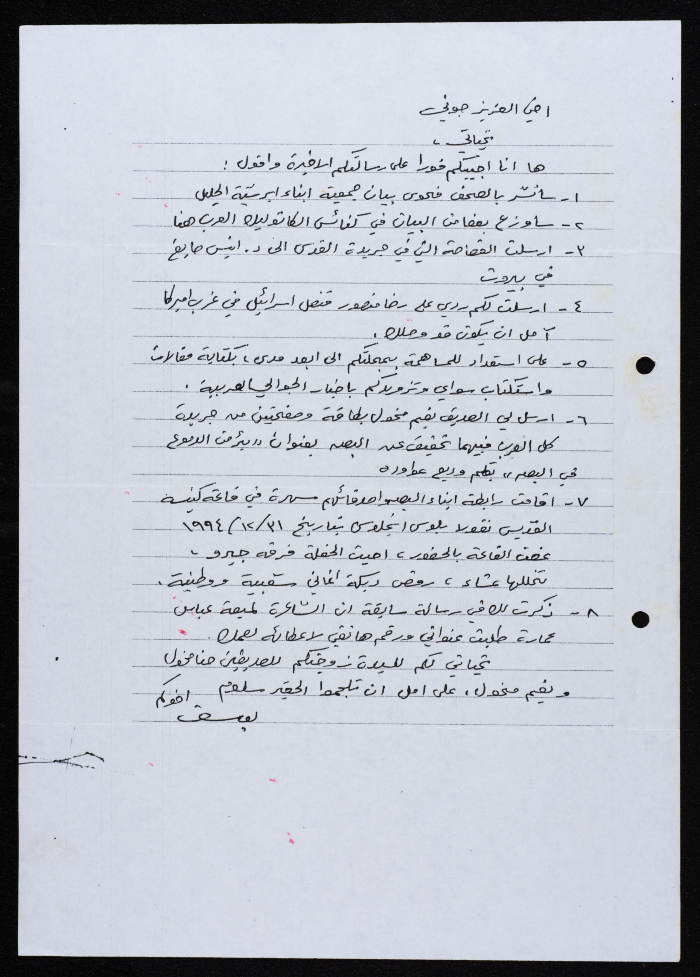 اخي العزيز جوني
تحياتي ،
ها انا اجيبكم فورا على رسالتكم الاخيرة واقول :
١- سأنشر بالصحف فحوى بيان جمعية ابناء ابرشية الجليل
٢- سأوزع بعضا من البيان في كنائس الكاثوليك العرب هنا
٣- ارسلت القصاصة التي في جريدة القدس الى د. انيس صايغ
في بيروت
٤- ارسلت لكم ردي على رضا منصور قنصل اسرائيل في غرب اميركا
آمل ان يكون قد وصلك .
٥- على استعداد للمساهمة بمجلتكم الى ابعد مدى ، بكتابة مقالات
واستكتاب سواي وتزويدكم باخبار الجوالي العربية .
٦- ارسل لي الصديق نعيم مخول بطاقة وصفحتين من جريدة
كل العرب فيهما تحقيق عن البصه بعنوان "بئر من الدموع
في البصه" بقلم وديع عواوده
٧- اقامت رابطة ابناء البصه واصدقائهم سهرة في قاعة كنيسة
القديس نقولا بلوس انجلوس بتاريخ ٣١/١٢/١٩٩٤
غصت القاعة بالحضور ، احيت الحفلة فرقه جيرو ،
تخللها عشاء ، رقص دبكة اغاني شعبية ووطنية .
٨- ذكرت لك في رسالة سابقة ان الشاعرة لميعة عباس
عمارة طلبت عنواني ورقم هاتفي لاعطائه لعمك .
تحياتي لكم للسيدة زوجتكم للصديقين حنا مخول
ونعيم مخول ، على امل ان اخوكم
يوسف